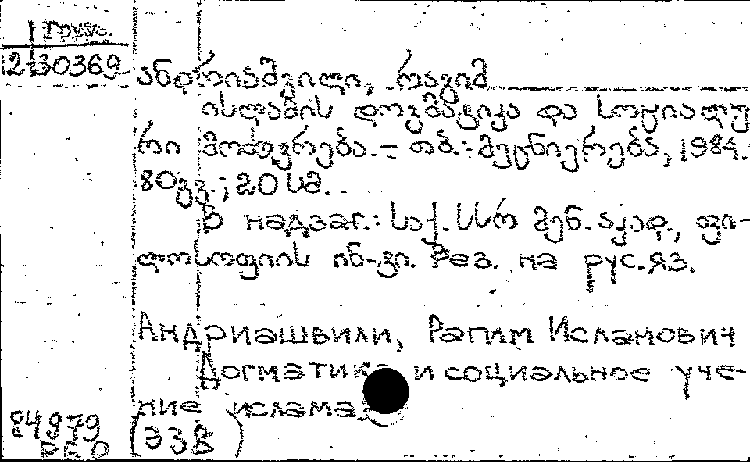 Груз.
2130369
ანდრიაშვილი, რაგიმ
ისლამის დოგმატიკა და სოციალუ
რი მოძღვრება. – თბ.: მეცნიერება, 1984.
80გვ.; 20 სმ.
В надзаг.: საქ. სსრ მეცნ. აკად., ფი-
ლოსოფიის ინ-ტი. Рез. на рус.яз.
Андриашвили, Рагим Исламович
Догматика и социальное уче-
ние ислама.
84979
(ЗЗВ)